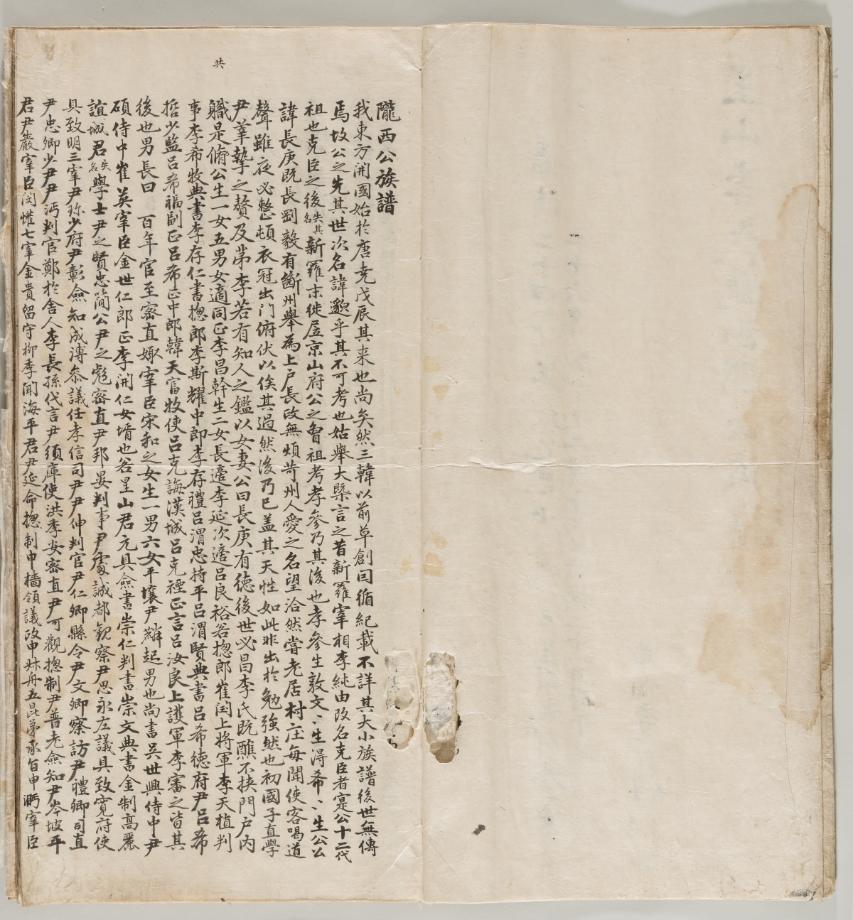 共
隴西公族譜
我東方開國始於唐堯戊辰其来也尚矣然三韓以前草創因循紀載不詳其大小族譜後世無傳
焉故公之先其世次名諱邈乎其不可考也姑舉大槩言之昔新羅宰相李純由改名克臣者寔公十二代
祖也克臣之後失其名新羅末徙居京山府公之曾祖考孝參乃其後也孝參生敦文〻生得希〻生公公
諱長庚既長剛毅有斷州舉為上戶長政無頗苛州人愛之名望洽然嘗老居村庄每聞使客喝道
聲雖夜必整頓衣冠出門俯伏以俟其過然後乃已盖其天性如此非出於勉強然也初國子直學
尹莘摯之贅及第李若有知人之鑑以女妻公曰長庚有徳後世必昌李氏既醮不挾門戶內
職是脩公生一女五男女適同正李昌幹生二女長適李延次適呂良裕若揔郎崔闵上將軍李天植判
事李希牧典書李存仁書揔郎李斯耀中郎李存禮呂渭忠持平呂渭賢典書呂希徳府尹呂希
哲少監呂希福副正呂希正中郎韓天富牧使呂克誨漢城呂克禋正言呂汝良上護軍李審之皆其
後也男長曰 百年官至密直娵宰臣宋和之女生一男六女平壤尹獜起男也尚書吳世興侍中尹
碩侍中崔英宰臣金世仁郎正李開仁女壻也谷呈山君元具僉書崇仁判書崇文典書金制高麗
誼城君失名學士尹之賢忠簡公尹之彪密直尹邦晏判事尹虔誠都觀察尹思永左議具致寬府使
具致明三宰尹珎少府尹彰僉知成溥叅議任孝信司尹尹仲判官尹仁卿縣令尹文卿察訪尹禮卿司直
尹忠卿少尹尹沔判官鄭於舍人李長孫代言尹須庫使洪季安密直尹可觀揔制尹普老僉知尹岑坡平
君尹嚴宰臣闵懽七宰金貴留守柳季聞海平君尹延命揔制申檣領議政申叔舟五昆弟承旨申㴐宰臣